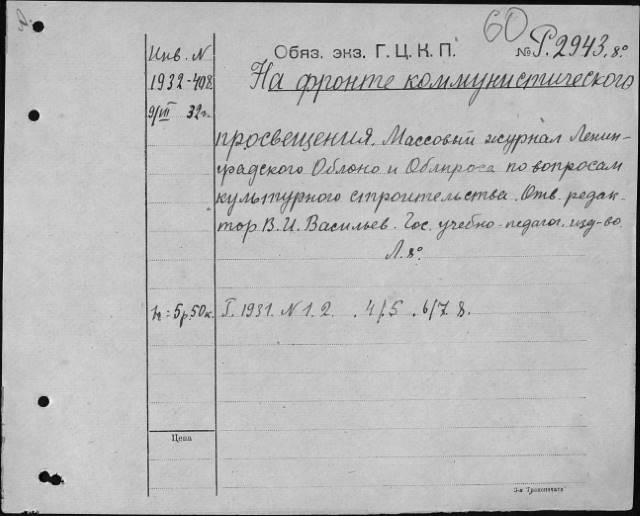 60
Инв. N Обяз. экз. Г.Ц.К.П. № Р. 2943, 8°
1932-498
9/VII 32 г.
На фронте коммунистического
просвещения. Массовый журнал Ленин-
градского Облоно и Облпроса по вопросам
культурного строительства. Отв. редак-
тор В. И. Васильев. Гос. учебно-педагог. изд-во.
Л. 8°.
ц = 5 р. 50 к. I. 1931. N 1. 2. . 4/5 . 6/7. 8.
Цена